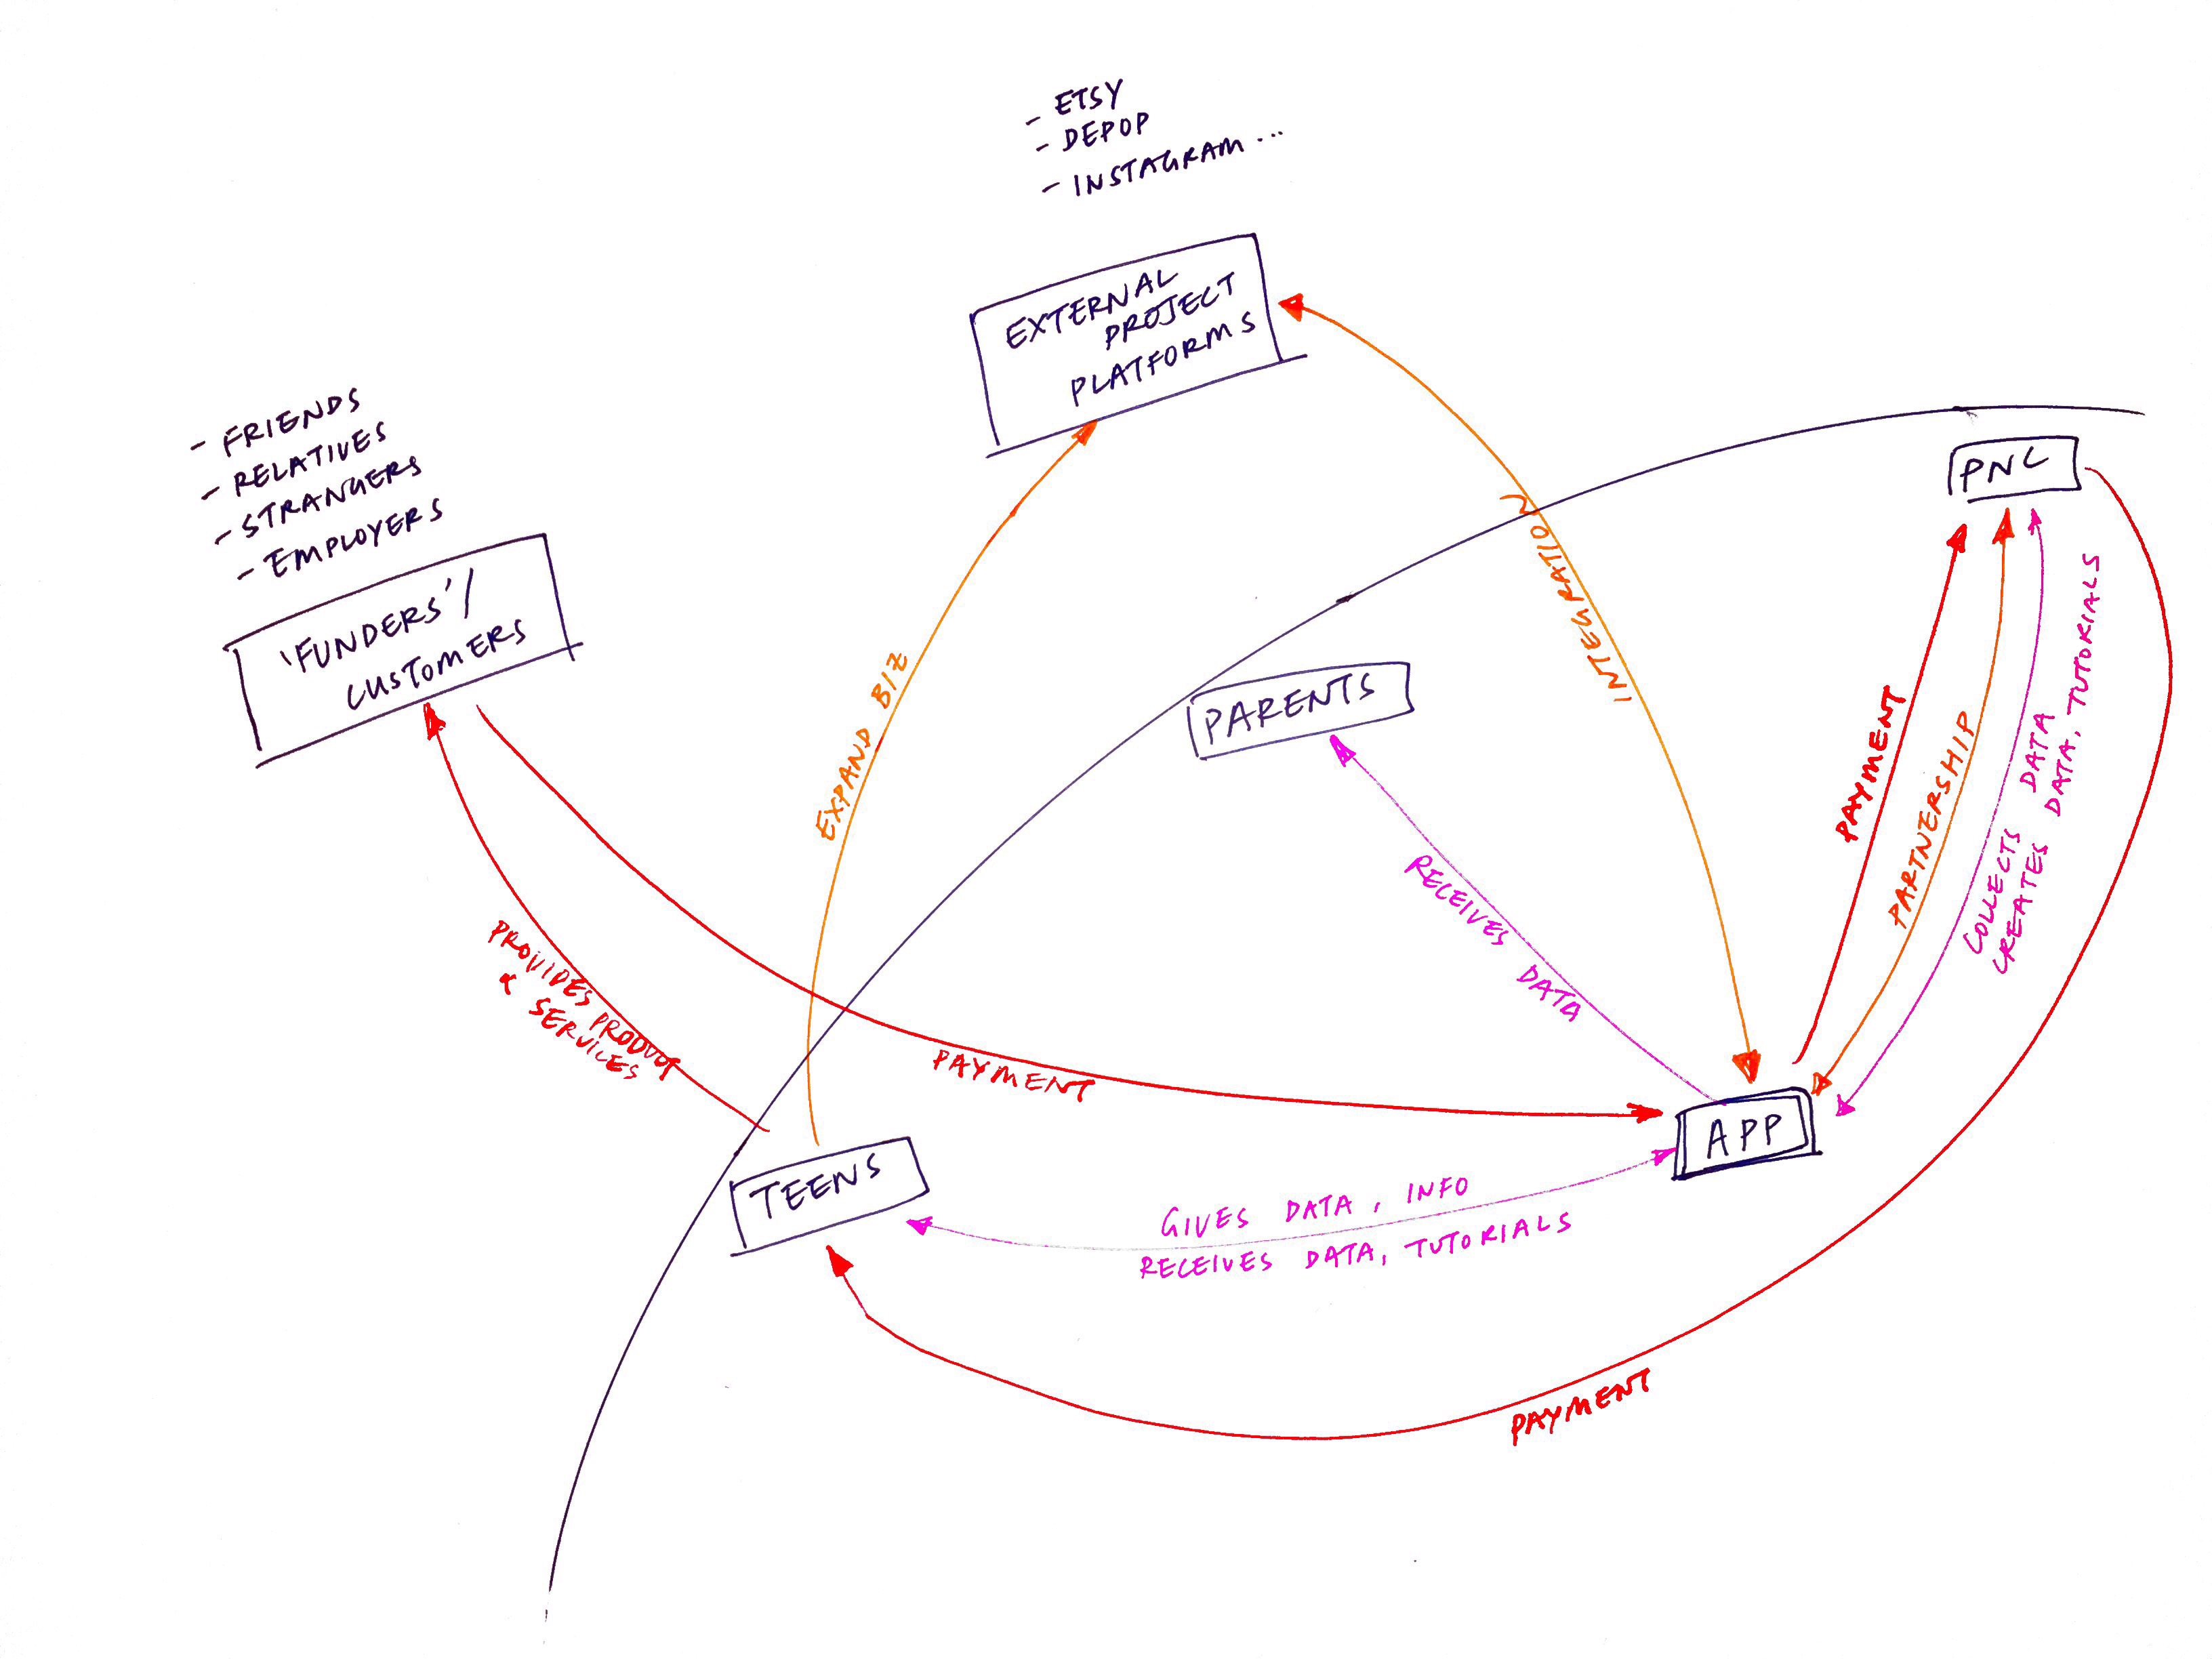 - ETSY
- DEPOP
- INSTAGRAM ...
EXTERNAL
PROJECT
PLATFORMS
- FRIENDS
- RELATIVES
- STRANGERS
- EMPLOYERS
'FUNDERS'/
CUSTOMERS
PNC
PARENTS
EXPAND BIZ
INTEGRATION
PAYMENT
PARTNERSHIP
COLLECTS DATA
CREATES DATA, TUTORIALS
RECEIVES DATA
PROVIDES PRODUCT
& SERVICES
PAYMENT
APP
TEENS
GIVES DATA, INFO
RECEIVES DATA, TUTORIALS
PAYMENT